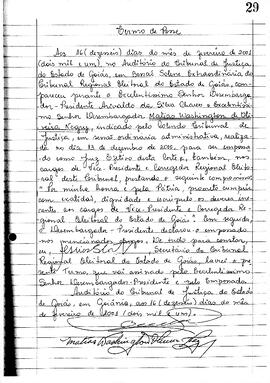 29
Termo de Posse
Aos 16 (dezesseis) dias do mês de janeiro de 2001
(dois mil e um), no Auditório do Tribunal de Justiça
do Estado de Goiás, em Sessão Extraordinária do
Tribunal Regional Eleitoral do Estado de Goiás, com-
pareceu perante o Excelentíssimo Senhor Desembarga-
dor-Presidente da Silva o Excelentíssi-
mo Senhor Desembargador Matias Washington de O-
liveira Negry, indicado pelo Tribunal de
Justiça, em sessão ordinária administrativa, realiza-
da no dia 13 de dezembro de 2000, para ser empos-
sado como Juiz Efetivo desta Corte e, também, nos
cargos de Vice-Presidente e Corregedor Regional Eleito-
ral deste Tribunal, prestando o seguinte compromisso:
minha honra e pela Pátria, prometo cumprir
com exatidão, dignidade e escrúpulo os deveres ine-
rentes aos cargos de Vice-Presidente e Corregedor Re-
gional Eleitoral do Estado de Goiás". Em seguida,
o Desembargador-Presidente declarou-o empossado
nos mencionados cargos. De tudo para constar,
eu Secretária do Tribunal
Regional Eleitoral do Estado de Goiás, lavrei o pre-
sente Termo, que vai assinado pelo Excelentíssimo
Senhor Desembargador-Presidente e pelo Empossado.
Auditório do Tribunal de Justiça do Estado
de Goiás, em Goiânia, aos 16 (dezesseis) dias do mês
de janeiro de 2001 (dois mil e um).
Matias Washington Oliveira Negry